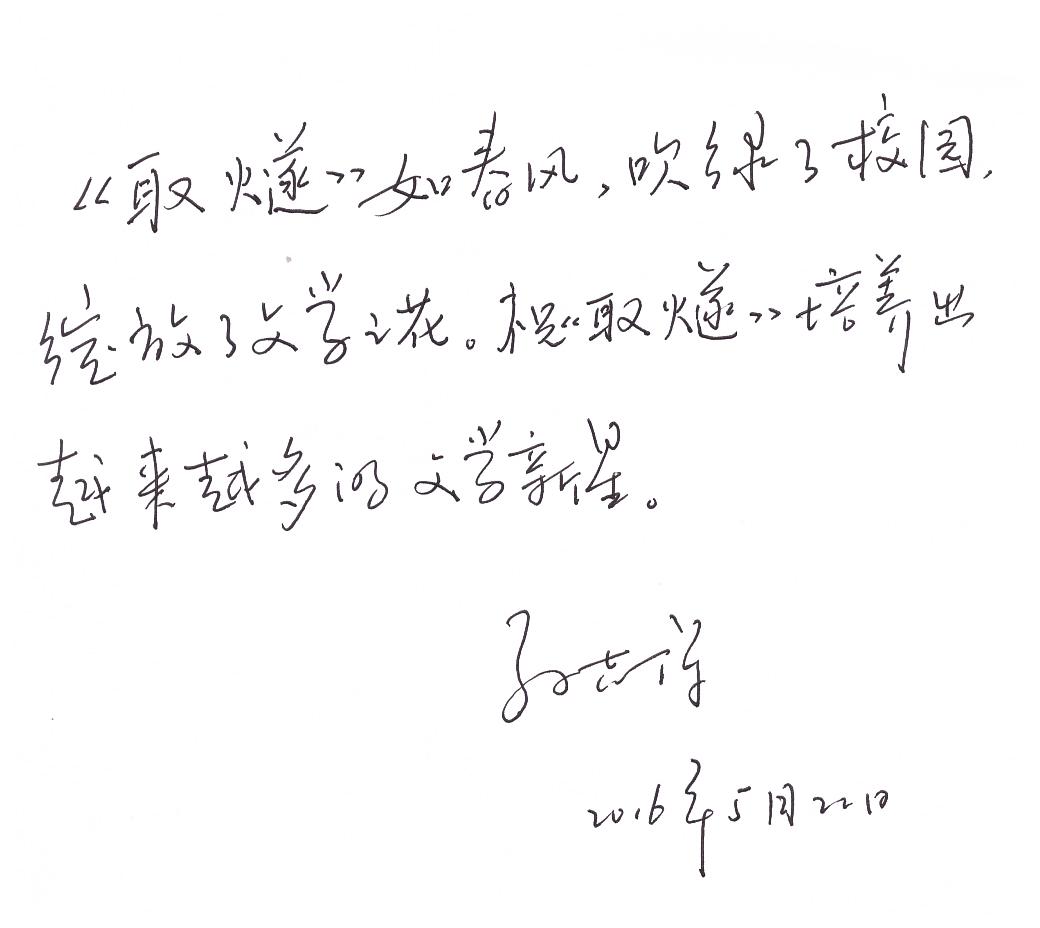 《取燧》如春风，吹绿了校园，
绽放了文学之花。祝《取燧》培养出
越来越多的文学新星。
孙志祥
2016年5月22日